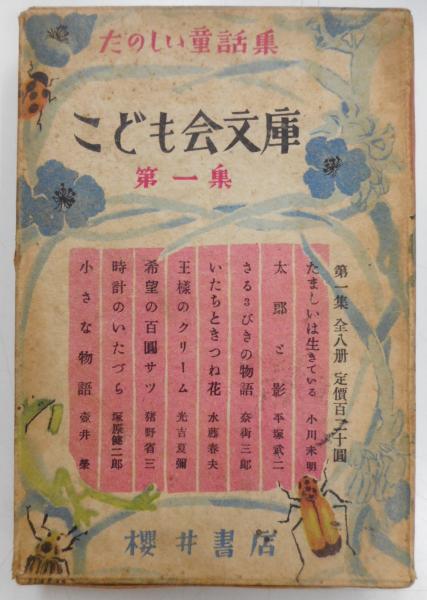 たのしい童話集
こども会文庫
第一集
第一集 全八册 定價百二十圓
たましいは生きている 小川未明
太郎と影 平塚武二
さる3びきの物語 奈街三郎
いたちときつね花 水藤春夫
王樣のクリーム 光吉夏彌
希望の百圓サツ 猪野省三
時計のいたづら 塚原健二郎
小さな物語 壺井榮
櫻井書店